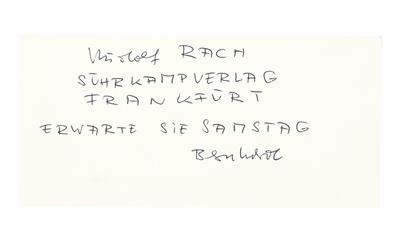 Rudolf RACH
SUHRKAMPVERLAG
FRANKFURT
ERWARTE SIE SAMSTAG
Bernhard